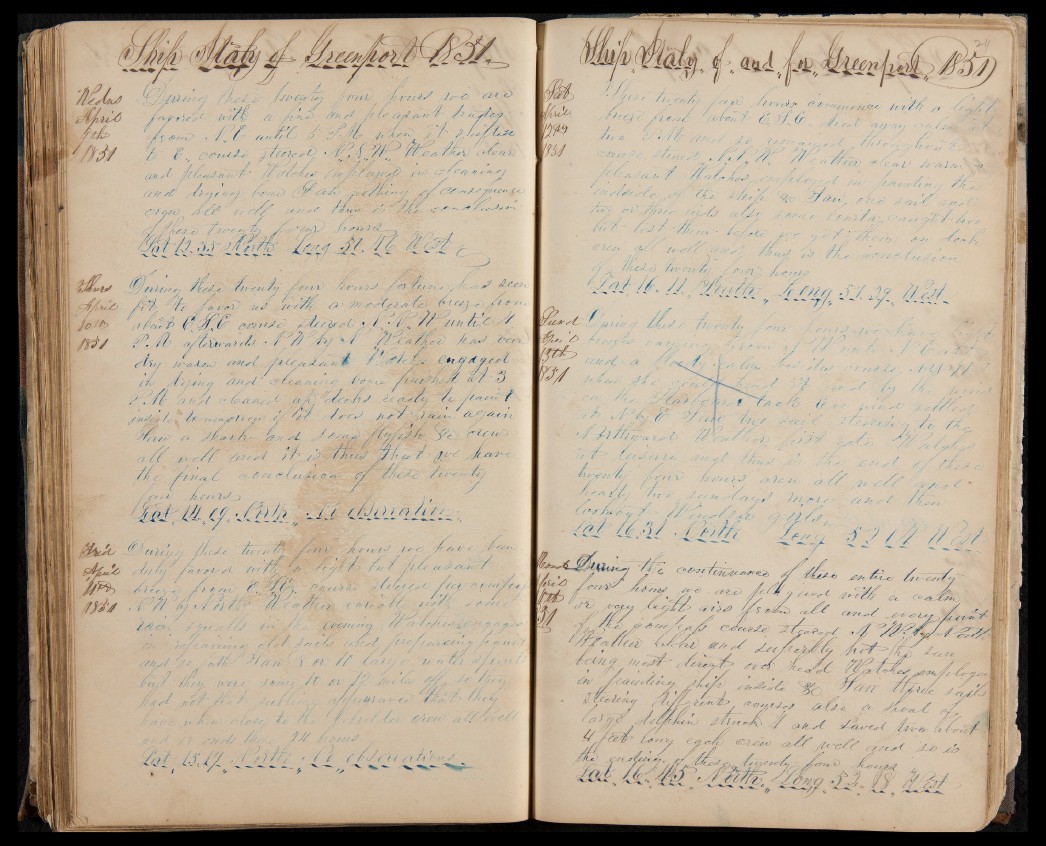 Ship Italy of Greenport 1851
Wedns
April
9th
1851
During these twenty four hours we are
favored with a fine and pleasant trades
from N. E. until 5 P.M. when it
to E. course steered N.N.W. Weather clear
and pleasant Watches employed in cleaning
and drying bone &c nothing of consequence
crew all well and thus is the conclusion
of these twenty four hours
Lat 12.55 North Long 51.46 West
Thurs
April
10th
1851
During these twenty four hours fortune has seen
fit to favor us with a moderate breeze from
about E.S.E course steered N.N.W until 4
P.M afterwards N W by N Weather has been
dry warm and pleasant Watches engaged
in drying and cleaning bone finished at 3
P.M and cleaned up decks ready to paint
inside tomorrow if it does not rain again
saw a shark and some flyfish &c crew
all well and it is thus that we have
the final conclusion of these twenty
four hours
Lat 14.09 North No observation
Frid
April
11th
1851
During these twenty four hours we have been
duly favored with a light but pleasant
breeze from E.S.E. course steered per compass
N.W by North Weather variable misty some
rain squalls in the evening Watches engaged
in repairing old sails and preparing paint
and so forth Saw 3 or 4 large water spouts
but they were some 10 or 12 miles off so they
had not that sublime appearance that they
have when close to the beholder crew all well
and so ends these 24 hours
Lat 15.17 North No observations
Ship Italy of and for Greenport 1851
Sat
April
12th
1851
These twenty four hours commence with a light
breeze from about E.S.E. died away calm
two P.M and so remained throughout
course steered N.N.W Weather clear warm
pleasant Watches employed in painting the
outside of the ship &c Saw one sail and
two or three also some caught two
but lost them before we got them on deck
crew all well and thus is the conclusion
of these twenty four hours
Lat 16.11 North Long 51.29 West
Sund
April
13th
1851
During these twenty four hours we have light
breezes varying from
and a dead calm besides course N.N.W
when she head it good by the wind
on the Starboard tack the wind settled
in N by E Saw two sail steering to the
Northward Weather Watches
at leisure and thus is the end of these
twenty four hours crew all well and
hearty two sundays more and then
looking
Lat 16.31 North Long 52 West
Mond
April
14th
51
During the continuance of these entire twenty
four hours we are plagued with a calm
or very light airs from all and every point
of the compass course steered N W by North
Weather calm and superbly hot the sun
being most directly over head Watches employed
in painting ship inside &c Saw three sails
steering different courses also a shoal of
large dolphin struck 4 and saved two about
4 feet long each crew all well and so is
the ending of these twenty four hours
Lat 16.45 North Long 52.18 West